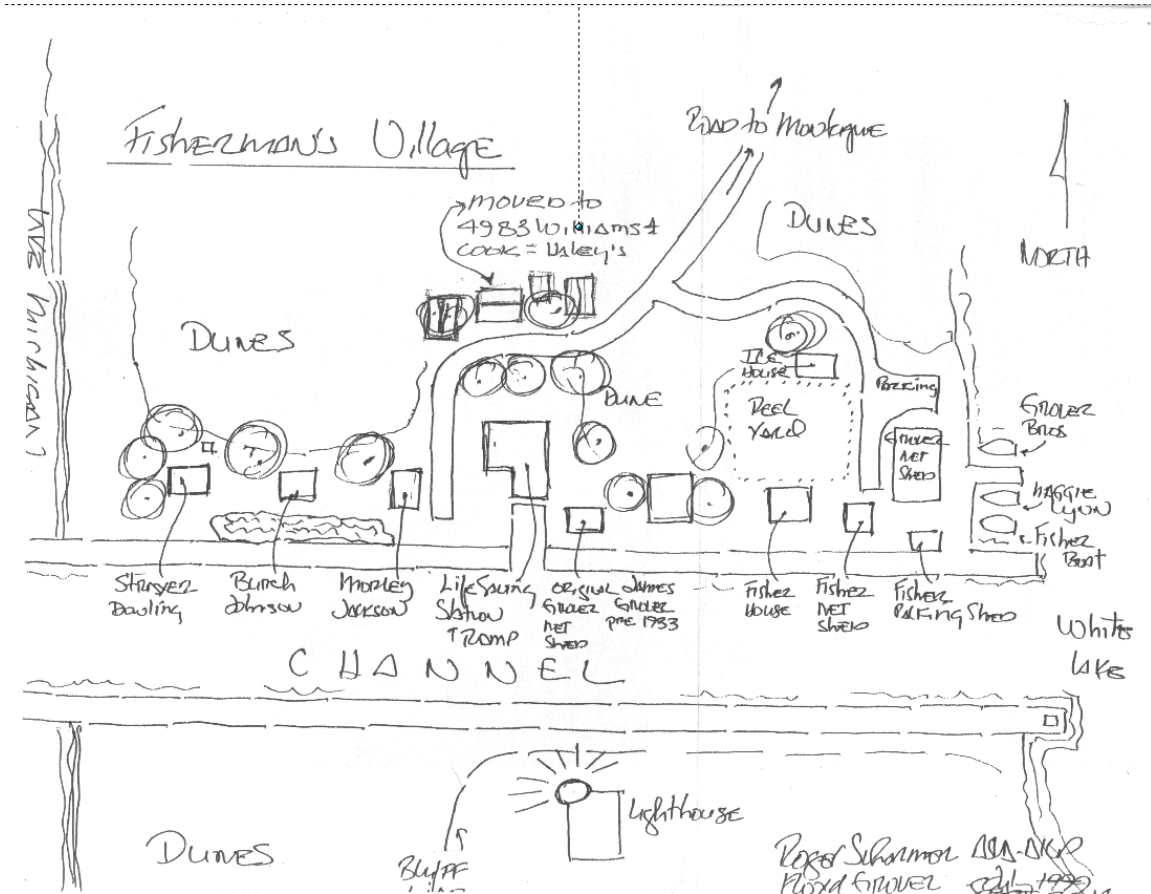 FISHERMAN'S Village
ROAD to MONTAGUE
MOVED to
4983 WILLIAMS +
COOK = HALEY'S
DUNES
NORTH
LAKE MICHIGAN
DUNES
DUNE
ICE
HOUSE
REEL
YARD
PARKING
GROVER
NET
SHED
GROVER
BROS
MAGGIE
LYON
FISHER
BOAT
STRAYER
Dowling
BUNCH
Johnson
MORLEY
JACKSON
Life Saving
Station
↑ RAMP
ORIGINAL
GROVER
NET
SHED
JAMES
GROVER
PRE 1933
FISHER
HOUSE
FISHER
NET
SHED
FISHER
PACKING SHED
WHITE
LAKE
CHANNEL
Lighthouse
DUNES
BLUFF
LINE
Roger Scharmer
Floyd GROVER